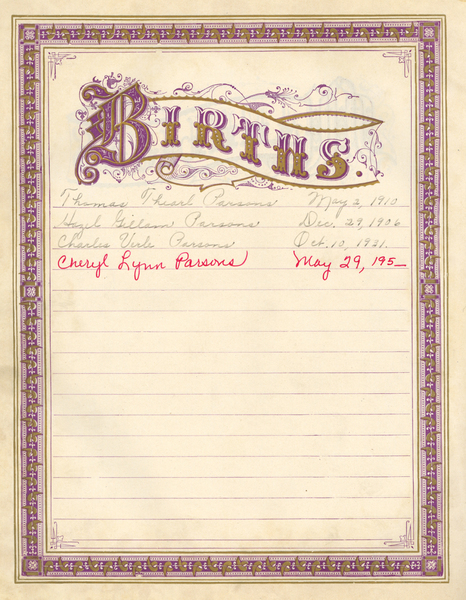 BIRTHS.
Thomas Thearl Parsons May 2, 1910
Hazel Gillam Parsons Dec. 29, 1906
Charles Virle Parsons Oct. 10, 1931.
Cheryl Lynn Parsons May 29, 195–